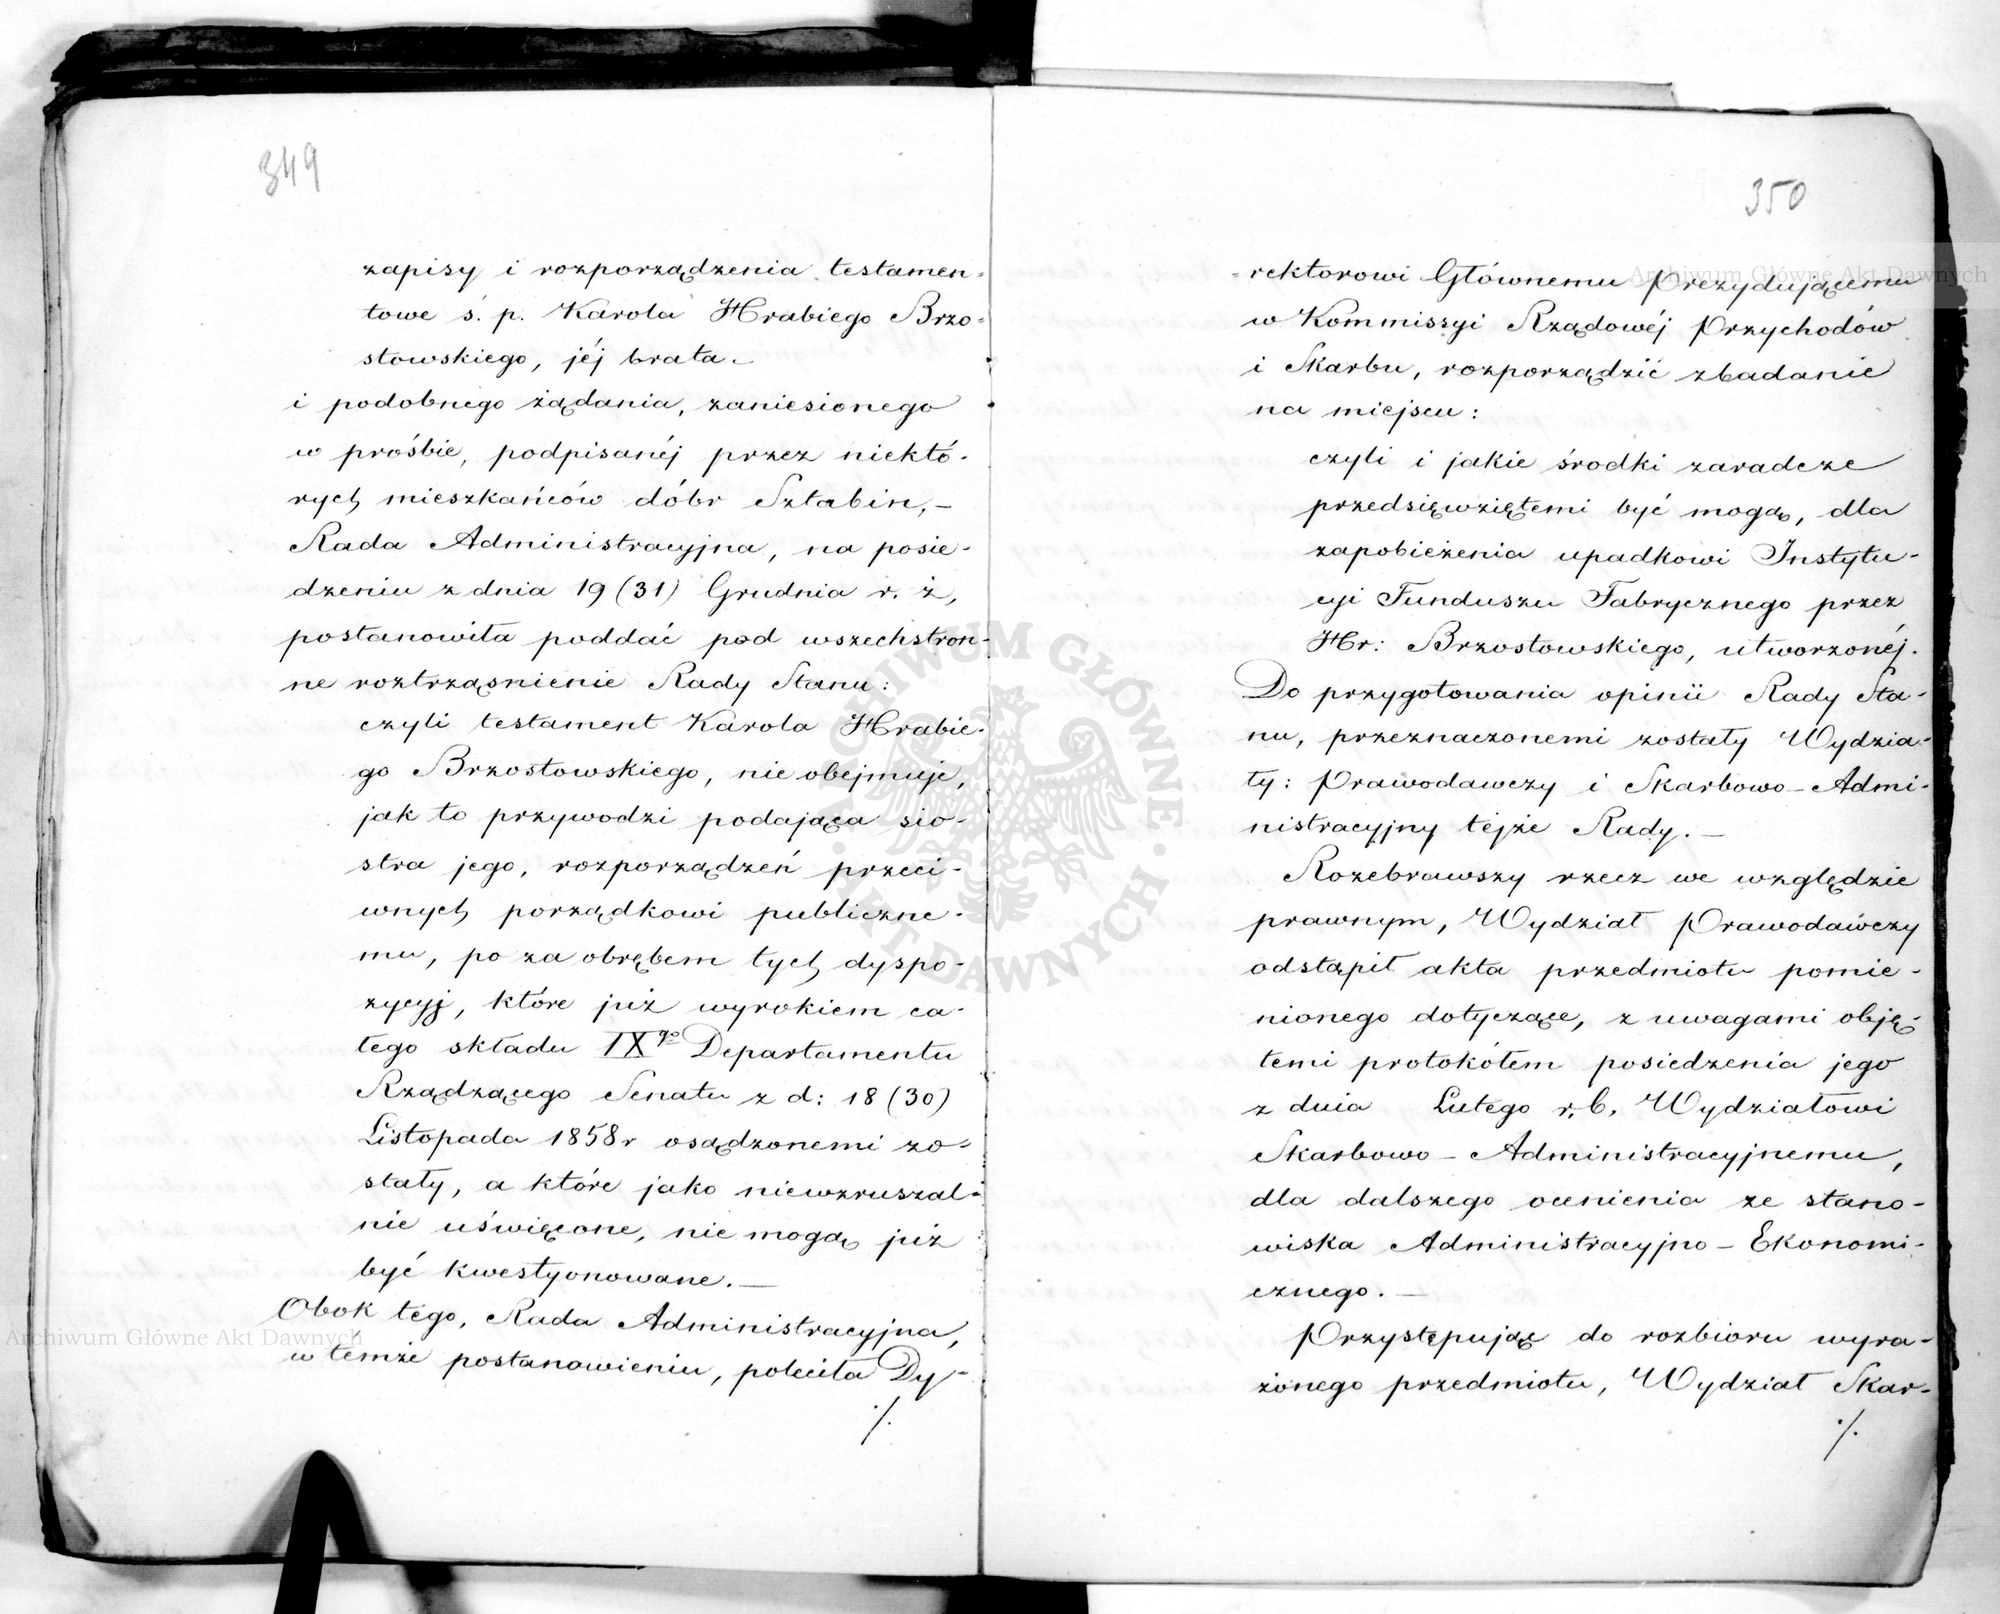 349
zapisy i rozporządzenia testamen-
towe ś. p. Karola Hrabiego Brzo-
stowskiego, jéj brata.
i podobnego żądania, zaniesionego
w prośbie, podpisanéj przez niektó-
rych mieszkańców dóbr Sztabin,—
Rada Administracyjna, na posie-
dzeniu z dnia 19 (31) Grudnia r. z,
postanowiła poddać pod wszechstron-
ne roztrząśnienie Rady Stanu:
czyli testament Karola Hrabie-
go Brzostowskiego, nie obejmuje,
jak to przywodzi podająca sio-
stra jego, rozporządzeń przeci-
wnych porządkowi publiczne-
mu, po za obrębem tych dyspo-
zycyj, które już wyrokiem ca-
łego składu IXgo Departamentu
Rządzącego Senatu z d: 18 (30)
Listopada 1858 r osądzonemi zo-
stały, a które jako niewzruszal-
nie uświęcone, nie mogą już
być kwestyonowane.—
Obok tego, Rada Administracyjna,
w temże postanowieniu, poleciła Dy-
./.
350
-rektorowi Głównemu Prezydującemu
w Kommissyi Rządowéj Przychodów
i Skarbu, rozporządzić zbadanie
na miejscu:
czyli i jakie środki zaradcze
przedsięwziętemi być mogą, dla
zapobieżenia upadkowi Instytu-
cyi Funduszu Fabrycznego przez
Hr: Brzostowskiego, utworzonéj.
Do przygotowania opinii Rady Sta-
nu, przeznaczonemi zostały Wydzia-
ły: Prawodawczy i Skarbowo-Admi-
nistracyjny tejże Rady.—
Rozebrawszy rzecz we względzie
prawnym, Wydział Prawodawczy
odstąpił akta przedmiotu pomie-
nionego dotyczące, z uwagami obję-
temi protokółem posiedzenia jego
z dnia Lutego r. b. Wydziałowi
Skarbowo-Administracyjnemu,
dla dalszego ocenienia ze stano-
wiska Administracyjno-Ekonomi-
cznego.—
Przystępując do rozbioru wyra-
żonego przedmiotu, Wydział Skar-
./.
Archiwum Główne Akt Dawnych
Archiwum Główne Akt Dawnych
ARCHIWUM GŁÓWNE · AKT DAWNYCH ·